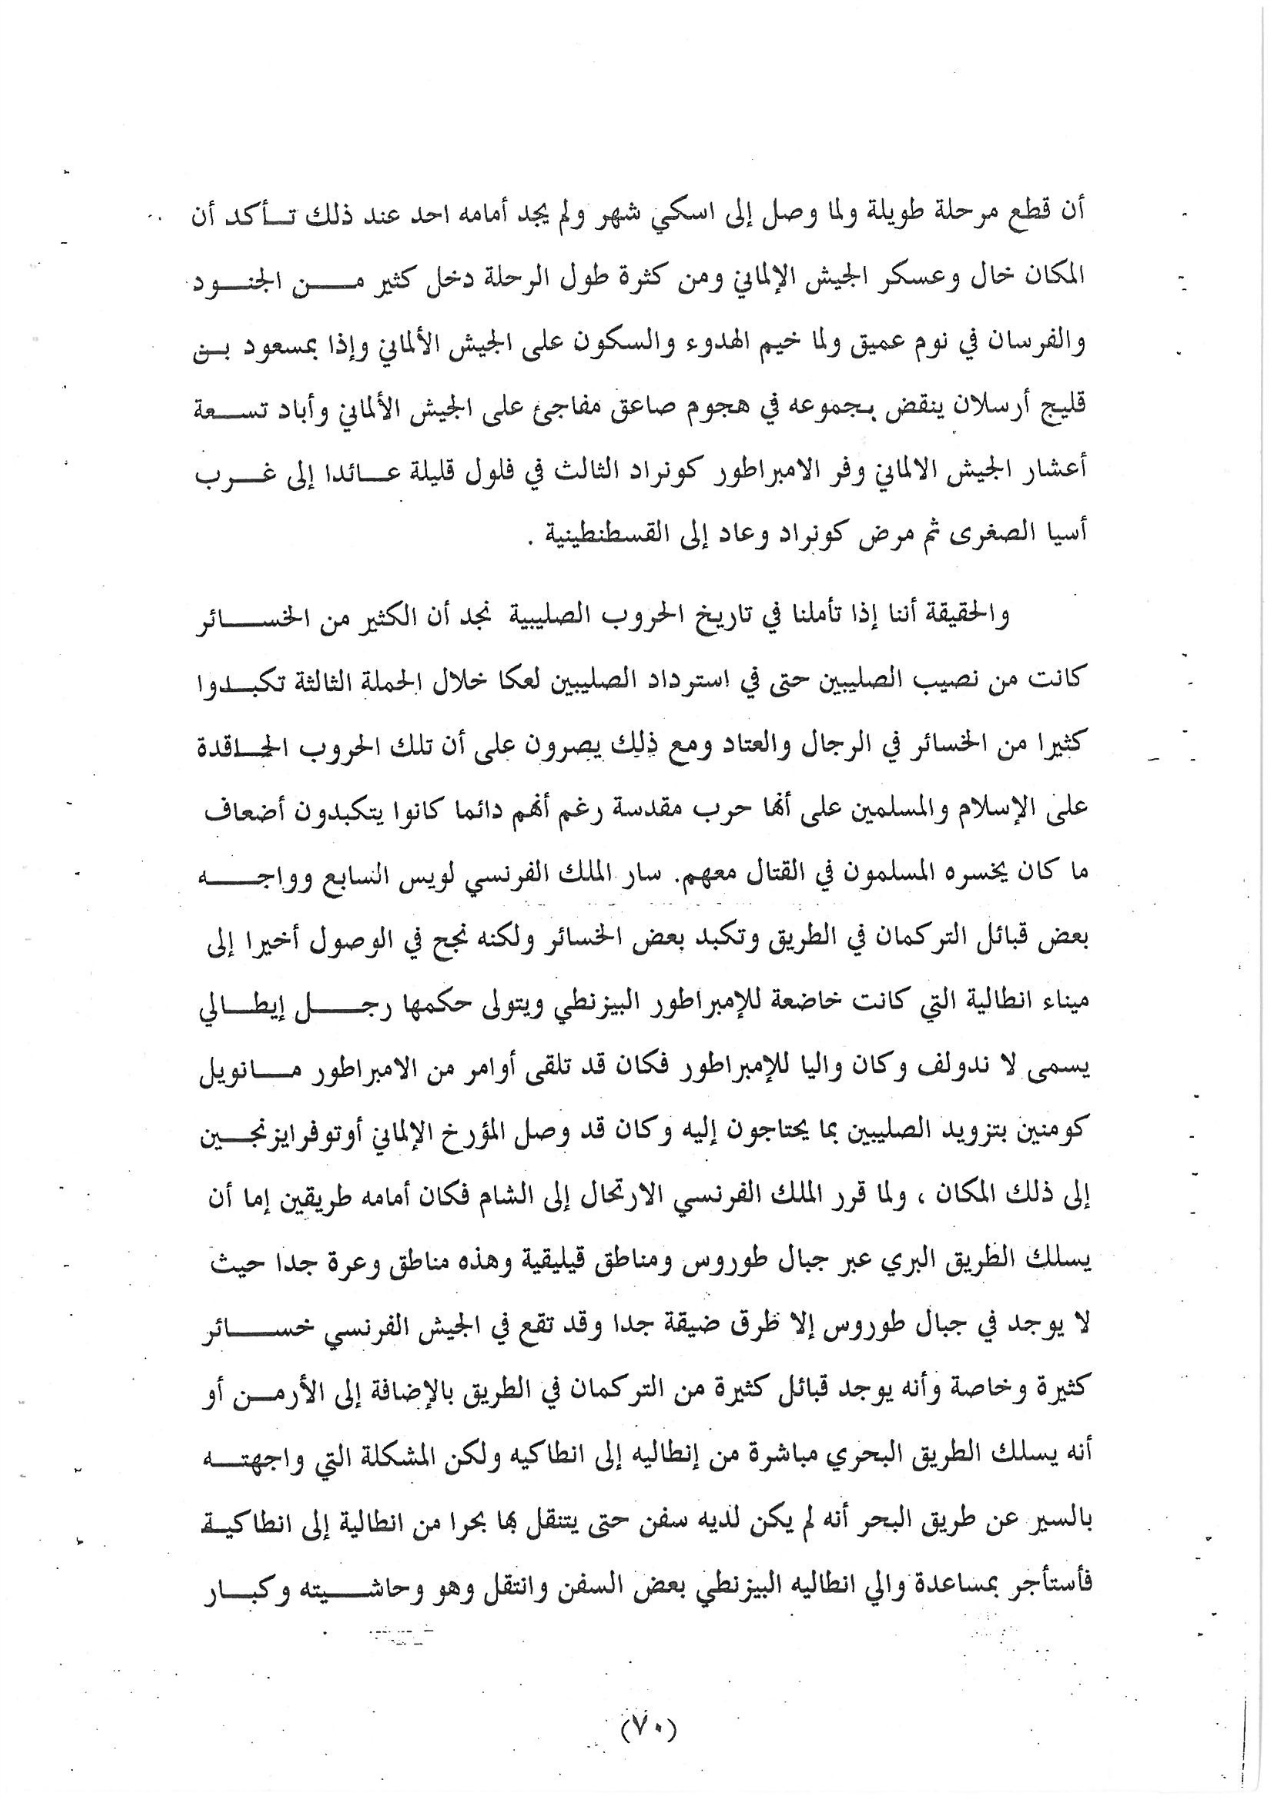 أن قطع مرحلة طويلة ولما وصل إلى اسكي شهر ولم يجد أمامه احد عند ذلك تأكد أن
المكان خال وعسكر الجيش الإلماني ومن كثرة طول الرحلة دخل كثير من الجنود
والفرسان في نوم عميق ولما خيم الهدوء والسكون على الجيش الألماني وإذا بمسعود بن
قليج أرسلان ينقض بجموعه في هجوم صاعق مفاجئ على الجيش الألماني وأباد تسعة
أعشار الجيش الالماني وفر الامبراطور كونراد الثالث في فلول قليلة عائدا إلى غرب
أسيا الصغرى ثم مرض كونراد وعاد إلى القسطنطينية .
والحقيقة أننا إذا تأملنا في تاريخ الحروب الصليبية نجد أن الكثير من الخسائر
كانت من نصيب الصليبين حتى في استرداد الصليبين لعكا خلال الحملة الثالثة تكبدوا
كثيرا من الخسائر في الرجال والعتاد ومع ذلك يصرون على أن تلك الحروب الحاقدة
على الإسلام والمسلمين على أنها حرب مقدسة رغم أنهم دائما كانوا يتكبدون أضعاف
ما كان يخسره المسلمون في القتال معهم. سار الملك الفرنسي لويس السابع وواجه
بعض قبائل التركمان في الطريق وتكبد بعض الخسائر ولكنه نجح في الوصول أخيرا إلى
ميناء انطالية التي كانت خاضعة للإمبراطور البيزنطي ويتولى حكمها رجل إيطالي
يسمى لا ندولف وكان واليا للإمبراطور فكان قد تلقى أوامر من الامبراطور مانويل
كومنين بتزويد الصليبين بما يحتاجون إليه وكان قد وصل المؤرخ الإلماني أوتوفرايزنجين
إلى ذلك المكان ، ولما قرر الملك الفرنسي الارتحال إلى الشام فكان أمامه طريقين إما أن
يسلك الطريق البري عبر جبال طوروس ومناطق قيليقية وهذه مناطق وعرة جدا حيث
لا يوجد في جبال طوروس إلا طرق ضيقة جدا وقد تقع في الجيش الفرنسي خسائر
كثيرة وخاصة وأنه يوجد قبائل كثيرة من التركمان في الطريق بالإضافة إلى الأرمن أو
أنه يسلك الطريق البحري مباشرة من إنطاليه إلى انطاكيه ولكن المشكلة التي واجهته
بالسير عن طريق البحر أنه لم يكن لديه سفن حتى يتنقل بها بحرا من انطالية إلى انطاكية
فأستأجر بمساعدة والي انطاليه البيزنطي بعض السفن وانتقل وهو وحاشيته وكبار
(٧٠)